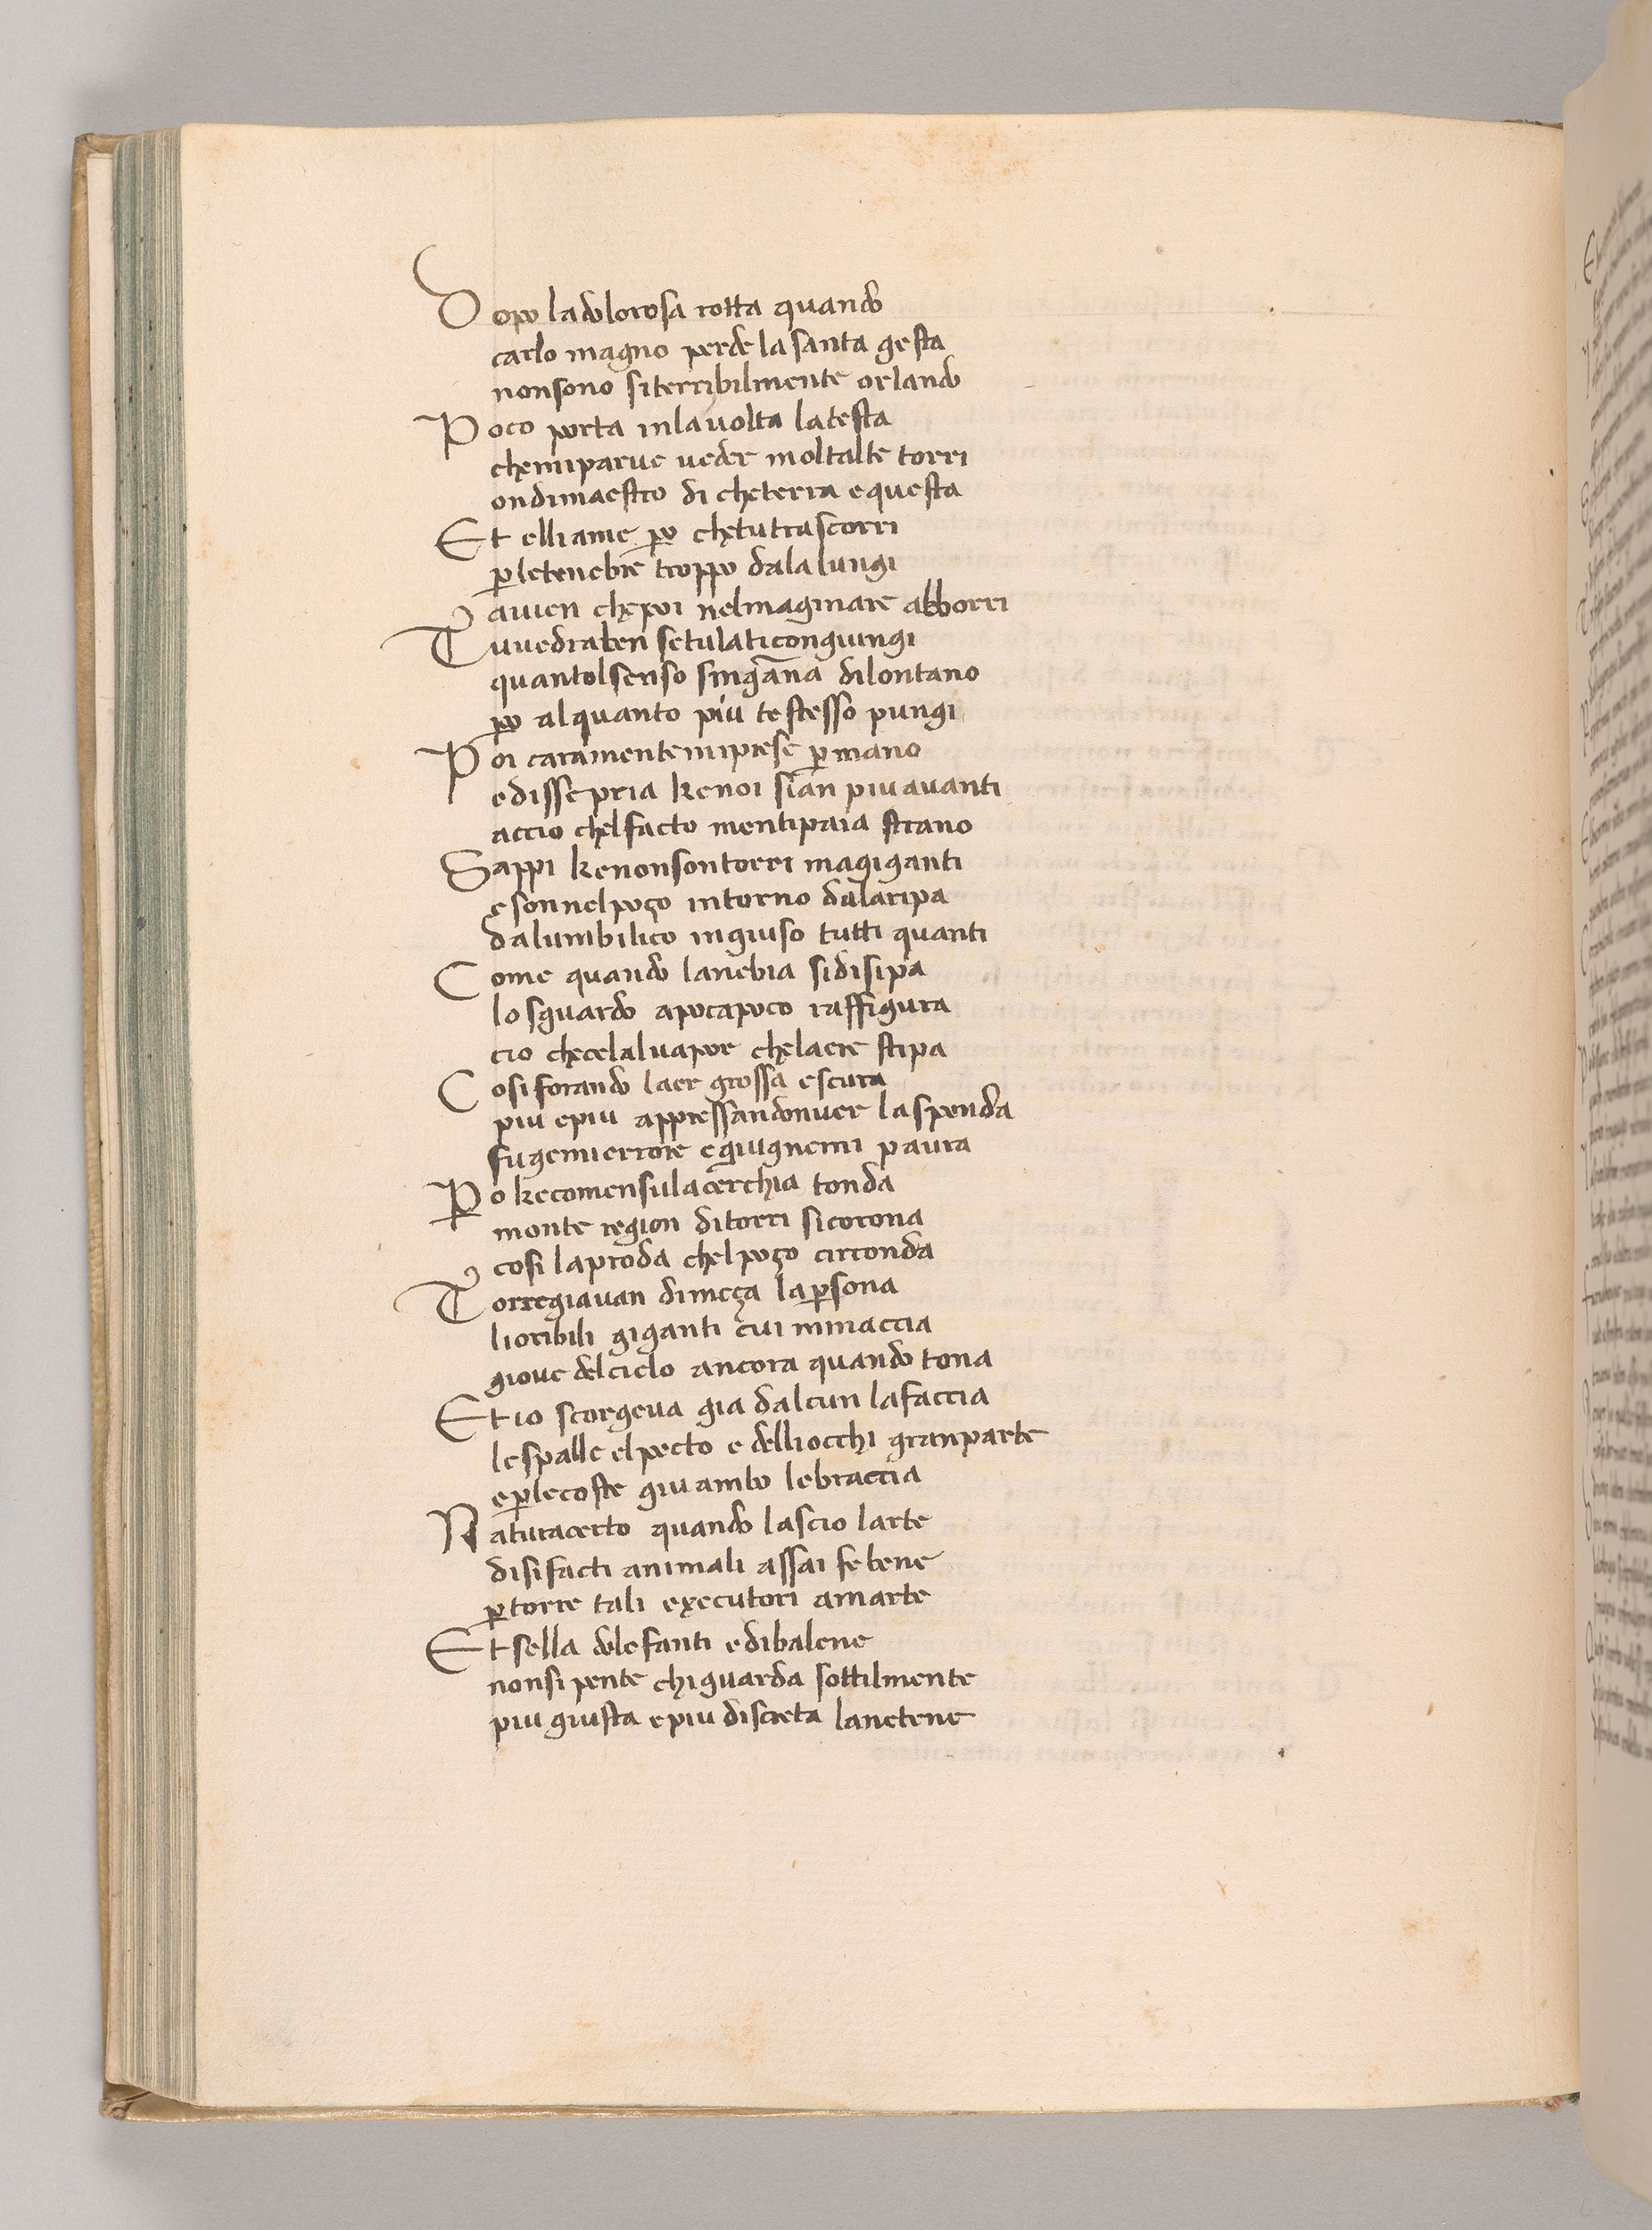 Dopo ladolorosa rotta quando
carlo magno perde la santa gesta
nonsono siterribilmente orlando
Poco porta inlauolta latesta
chemiparue ueder moltalte torri
ondimaestro di cheterra equesta
Et elliame po chetutrascorri
pletenebre troppo dalalungi
auien chepoi nelmaginare abborri
Tuuedraiben setulaticongiungi
quantolsenso singāna dilontano
po alquanto piu testesso pungi
Poi caramentemiprese pmano
edissepria kenoi sian piuauanti
accio chelfacto mentipaia strano
Sappi kenonsontorri magiganti
esonnelpoço intorno dalaripa
dalumbilico ingiuso tutti quanti
Come quando lanebia sidisipa
lo sguardo apocapoco raffigura
cio checelaluapor chelaere stipa
Cosi forando laer grossa escura
piu epiu appressandonuer laspenda
fugemierrore egiugnemi paura
Po kecomensulacerchia tonda
monte region ditorri sicorona
cosi laproda chelpoço circonda
Torregiauan dimeça lapsona
lioribili giganti cui minaccia
gioue delcielo ancora quando tona
Etio scorgeua gia dalcun lafaccia
lespalle elpecto e delliocchi granparte
eplecoste giuambo lebraccia
Naturacerto quando lascio larte
disifacti animali assai febene
ptorre tali executori amarte
Etsella dolefanti edibalene
nonsi pente chiguarda sottilmente
piugiusta epiu discreta lanetene